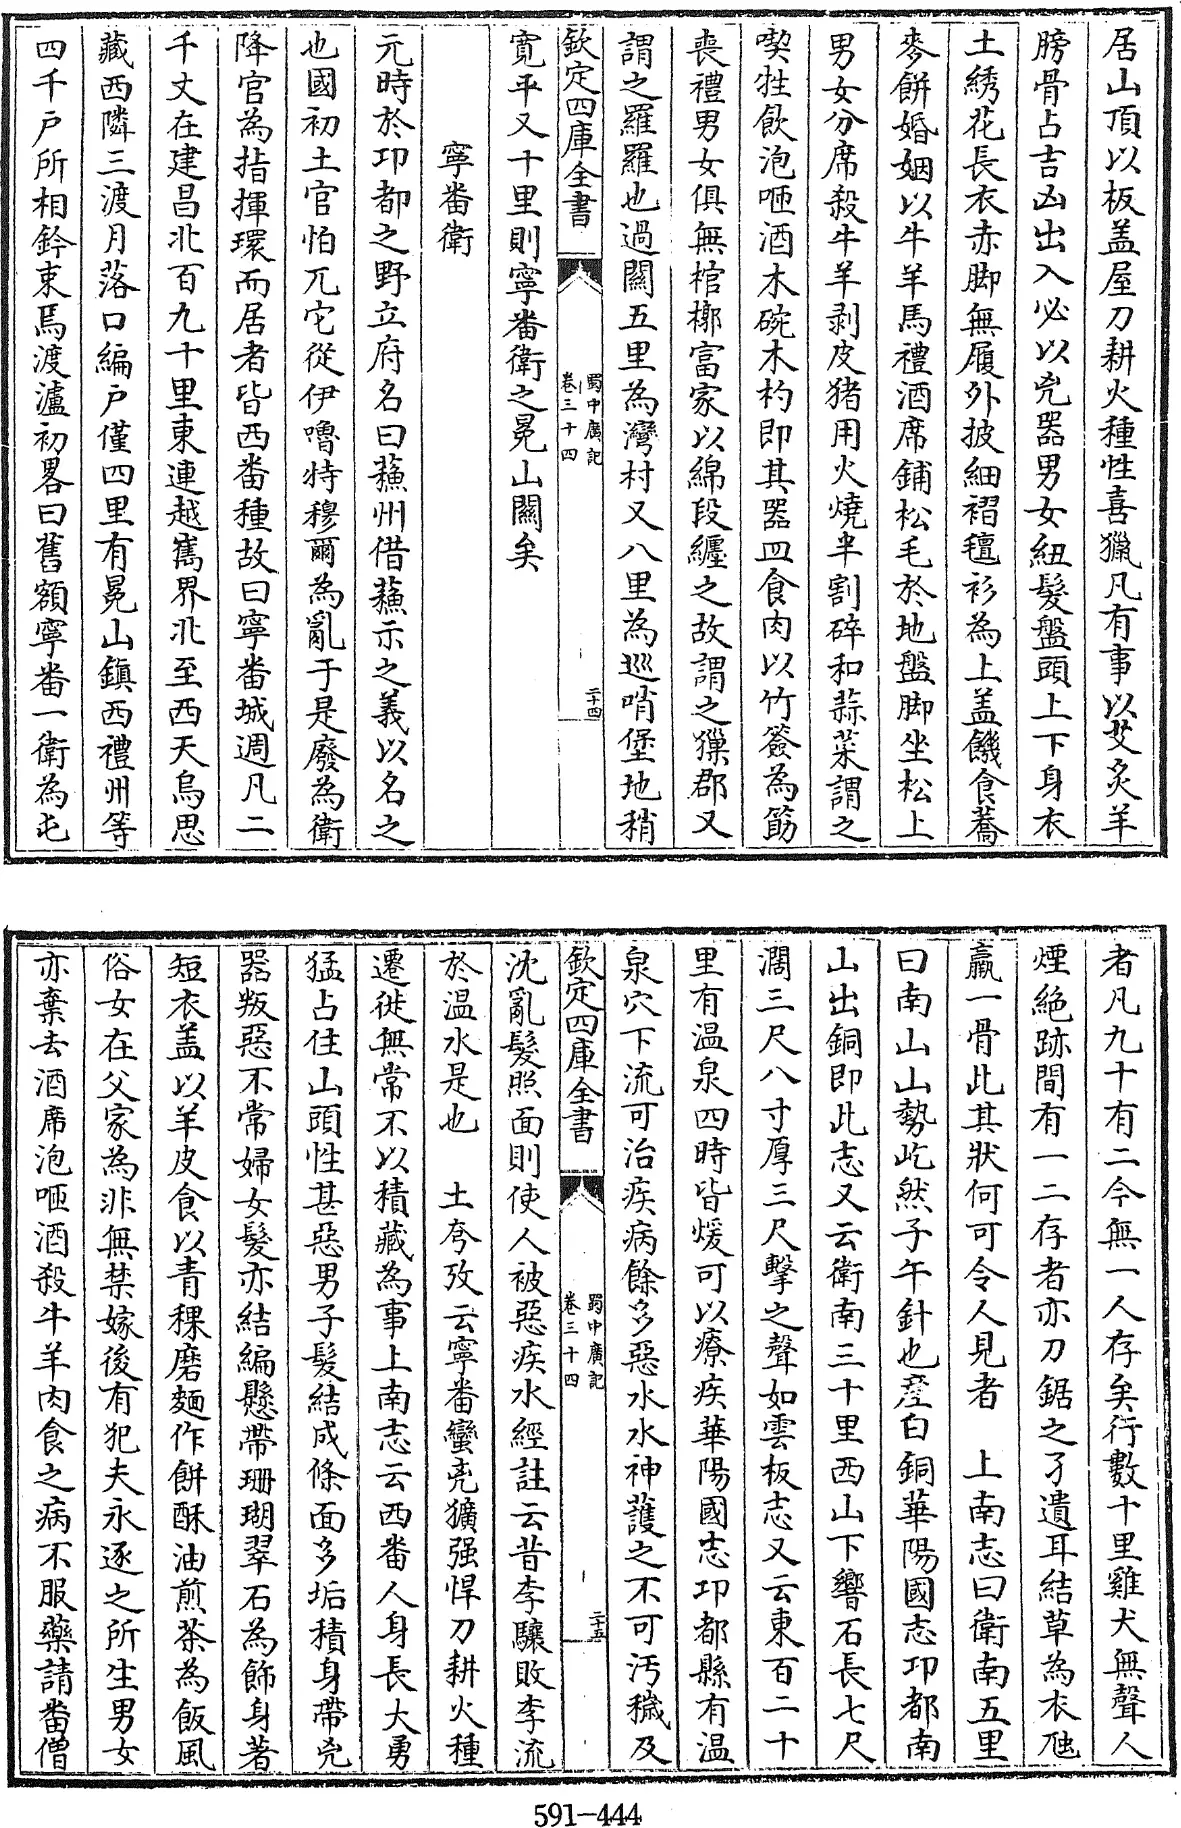 居山頂以板盖屋刀耕火種性喜獵凡有事以艾炙羊
膀骨占吉凶出入必以兇器男女紐髮盤頭上下身衣
土綉花長衣赤脚無履外披細褶氊衫為上盖饑食蕎
麥餅婚姻以牛羊馬禮酒席鋪松毛於地盤脚坐松上
男女分席殺牛羊剥皮猪用火燒半割碎和蒜菜謂之
喫牲飲泡咂酒木碗木杓即其器皿食肉以竹簽為筯
喪禮男女俱無棺槨富家以綿段纏之故謂之猓郡又
謂之羅羅也過關五里為灣村又八里為巡哨堡地稍
欽定四庫全書
蜀中廣記
卷三十四
二十四
寛平又十里則寧番衛之冕山關矣
寧番衛
元時於邛都之野立府名曰蘓州借蘓示之義以名之
也國初土官怕兀它從伊嚕特穆爾為亂于是廢為衛
降官為指揮環而居者皆西番種故曰寧番城週凡二
千丈在建昌北百九十里東連越巂界北至西天烏思
藏西隣三渡月落口編户僅四里有冕山鎮西禮州等
四千户所相鈐束焉渡瀘初畧曰舊額寧番一衛為屯
者凡九十有二今無一人存矣行數十里雞犬無聲人
煙絶跡間有一二存者亦刀鋸之孑遺耳結草為衣尫
羸一骨此其狀何可令人見者　上南志曰衛南五里
曰南山山勢屹然子午針也産白銅華陽國志邛都南
山出銅即此志又云衛南三十里西山下響石長七尺
濶三尺八寸厚三尺擊之聲如雲板志又云東百二十
里有温泉四時皆煖可以療疾華陽國志邛都縣有温
泉穴下流可治疾病餘多惡水水神䕶之不可汚穢及
欽定四庫全書
蜀中廣記
卷三十四
二十五
沈亂髮照面則使人被惡疾水經註云昔李驤敗李流
於温水是也　土夸攷云寧番蠻兇獷强悍刀耕火種
遷徙無常不以積藏為事上南志云西番人身長大勇
猛占住山頭性甚惡男子髮結成條面多垢積身帶兇
器叛惡不常婦女髮亦結編懸帶珊瑚翠石為飾身著
短衣盖以羊皮食以青稞磨麵作餅酥油煎茶為飯風
俗女在父家為非無禁嫁後有犯夫永逐之所生男女
亦棄去酒席泡咂酒殺牛羊肉食之病不服藥請番僧
591-444